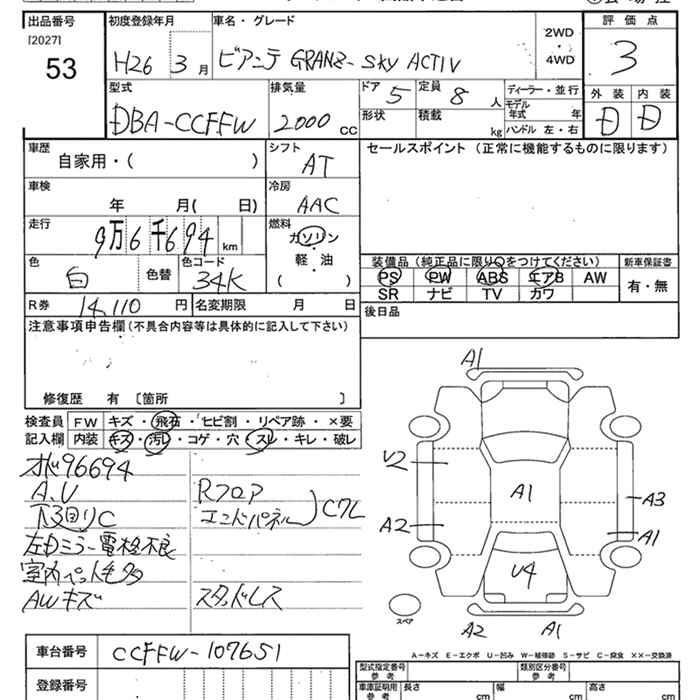 出品番号
[2027]
53
初度登録年月
H26 3月
車名・グレード
ビアンテ GRANZ-SKY ACTIV
2WD
・
4WD
評価点
3
外装 内装
D D
型式
DBA-CCFFW
排気量
2000 cc
ドア 5
形状
定員 8 人
積載 kg
ディーラー・並行
モデル
年式 年
ハンドル 左・右
車歴
自家用・( )
シフト
AT
車検
年 月( 日)
冷房
AAC
走行
9万6千694 km
燃料
ガソリン
・
軽・油
( )
色
白
色替
色コード
34K
R券 14,110 円
名変期限 月 日
セールスポイント (正常に機能するものに限ります)
装備品(純正品に限り○をつけてください)
PS PW ABS エアB AW
SR ナビ TV カワ
新車保証書
有・無
後日品
注意事項申告欄(不具合内容等は具体的に記入して下さい)
修復歴 有 〔箇所 〕
検査員
記入欄
FW キズ・飛石・ヒビ割・リペア跡・×要
内装 キズ・汚レ・コゲ・穴・スレ・キレ・破レ
96694
A.U
下回りC
左ミラー電格不良
室内ペット毛多
AWキズ
Rフロア
エンドパネル
Cワレ
スタッドレス
A1
U2
A2
A1
A3
A1
U4
A2
A1
スペア
A-キズ E-エクボ U-凹み W-補修跡 S-サビ C-腐食 XX-交換済
車台番号 CCFFW-107651
登録番号
型式指定番号
参考
類別区分番号
参考
車庫証明用
参考
長さ cm
幅 cm
高さ cm